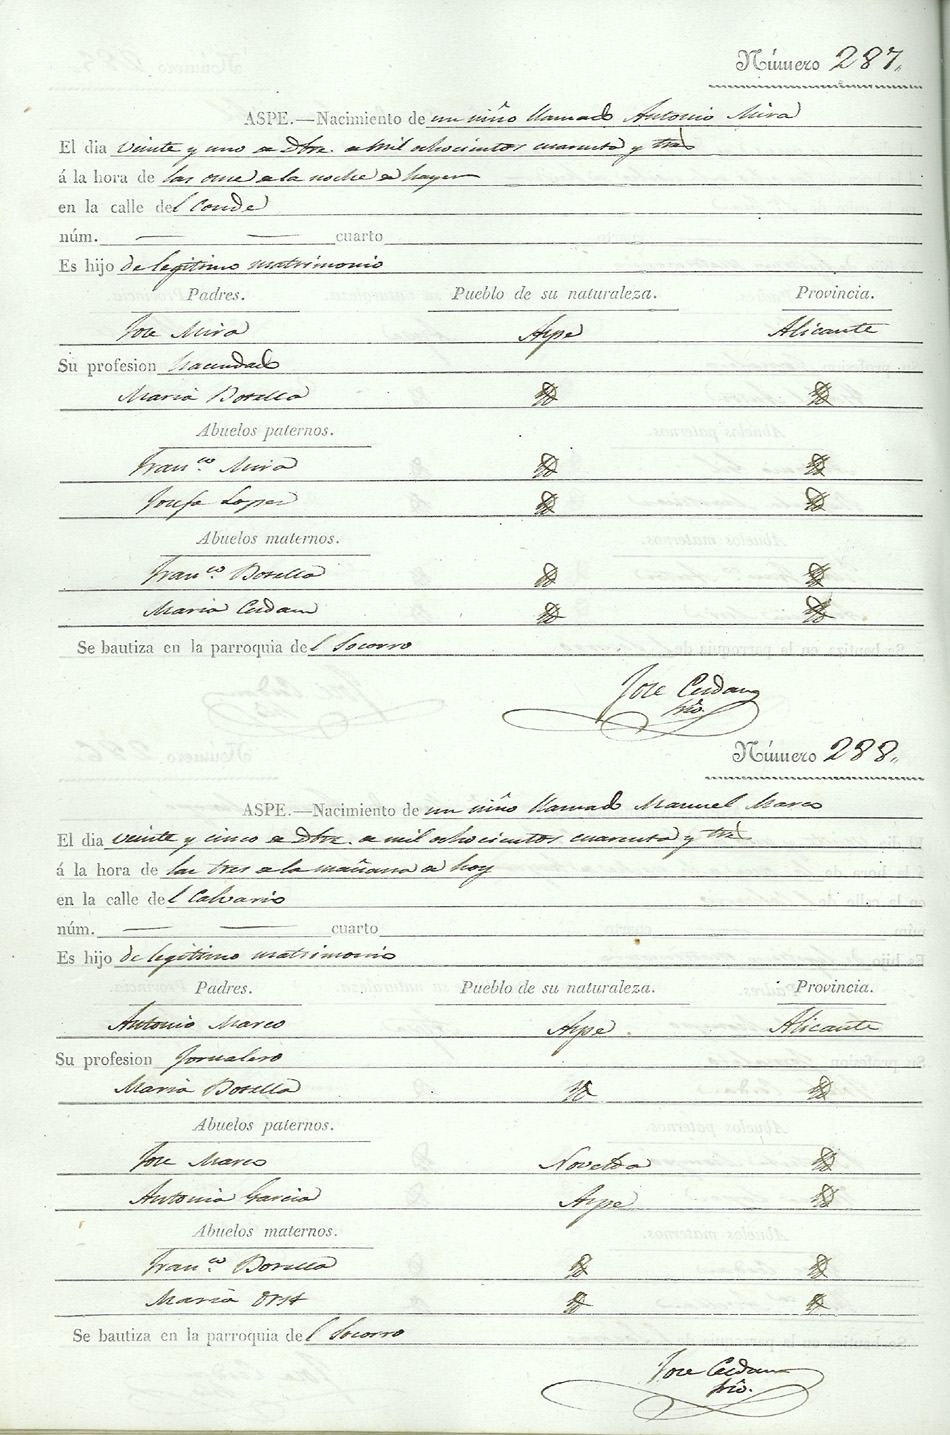 Número 287.
ASPE.—Nacimiento de un niño llamado Antonio Mira
El dia veinte y uno de Dbre. de mil ochocientos cuarenta y tres
á la hora de las once de la noche de hayer
en la calle del Conde
núm. — — cuarto
Es hijo de legitimo matrimonio
Padres. Pueblo de su naturaleza. Provincia.
Jose Mira Aspe Alicante
Su profesion hacendado
Maria Botella
Abuelos paternos.
Franco. Mira
Josefa Lopez
Abuelos maternos.
Franco. Botella
Maria Cerdan
Se bautiza en la parroquia del Socorro
Jose Cerdan
srio.
Número 288.
ASPE.—Nacimiento de un niño llamado Manuel Marco
El dia veinte y cinco de Dbre. de mil ochocientos cuarenta y tres
á la hora de las tres de la mañana de hoy
en la calle del Calvario
núm. — — cuarto
Es hijo de legitimo matrimonio
Padres. Pueblo de su naturaleza. Provincia.
Antonio Marco Aspe. Alicante
Su profesion Jornalero
Maria Botella
Abuelos paternos.
Jose Marco Novelda
Antonia Garcia Aspe
Abuelos maternos.
Franco. Botella
Maria
Se bautiza en la parroquia del Socorro
Jose Cerdan
srio.